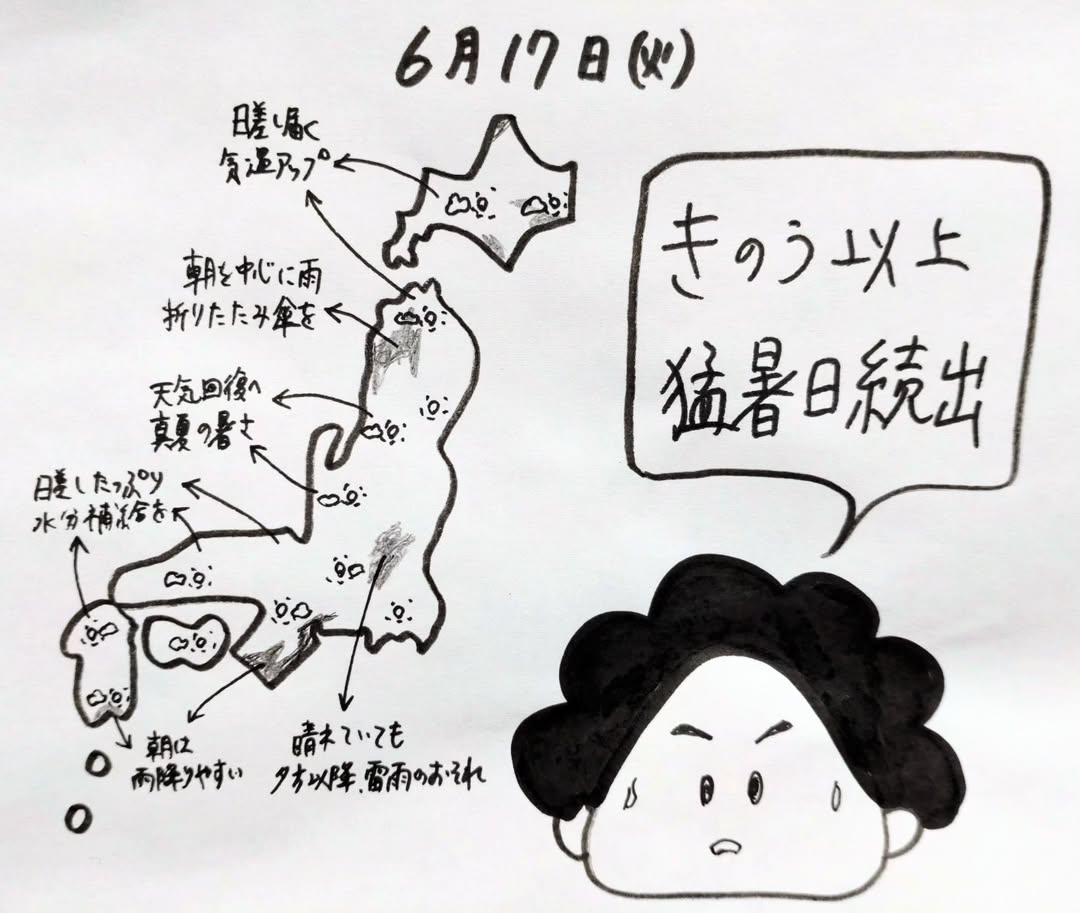 6月17日(火)
日差し届く
気温アップ
朝を中心に雨
折りたたみ傘を
天気回復へ
真夏の暑さ
日差したっぷり
水分補給を
朝は
雨降りやすい
晴れていても
夕方以降、雷雨のおそれ
きのう以上
猛暑日続出